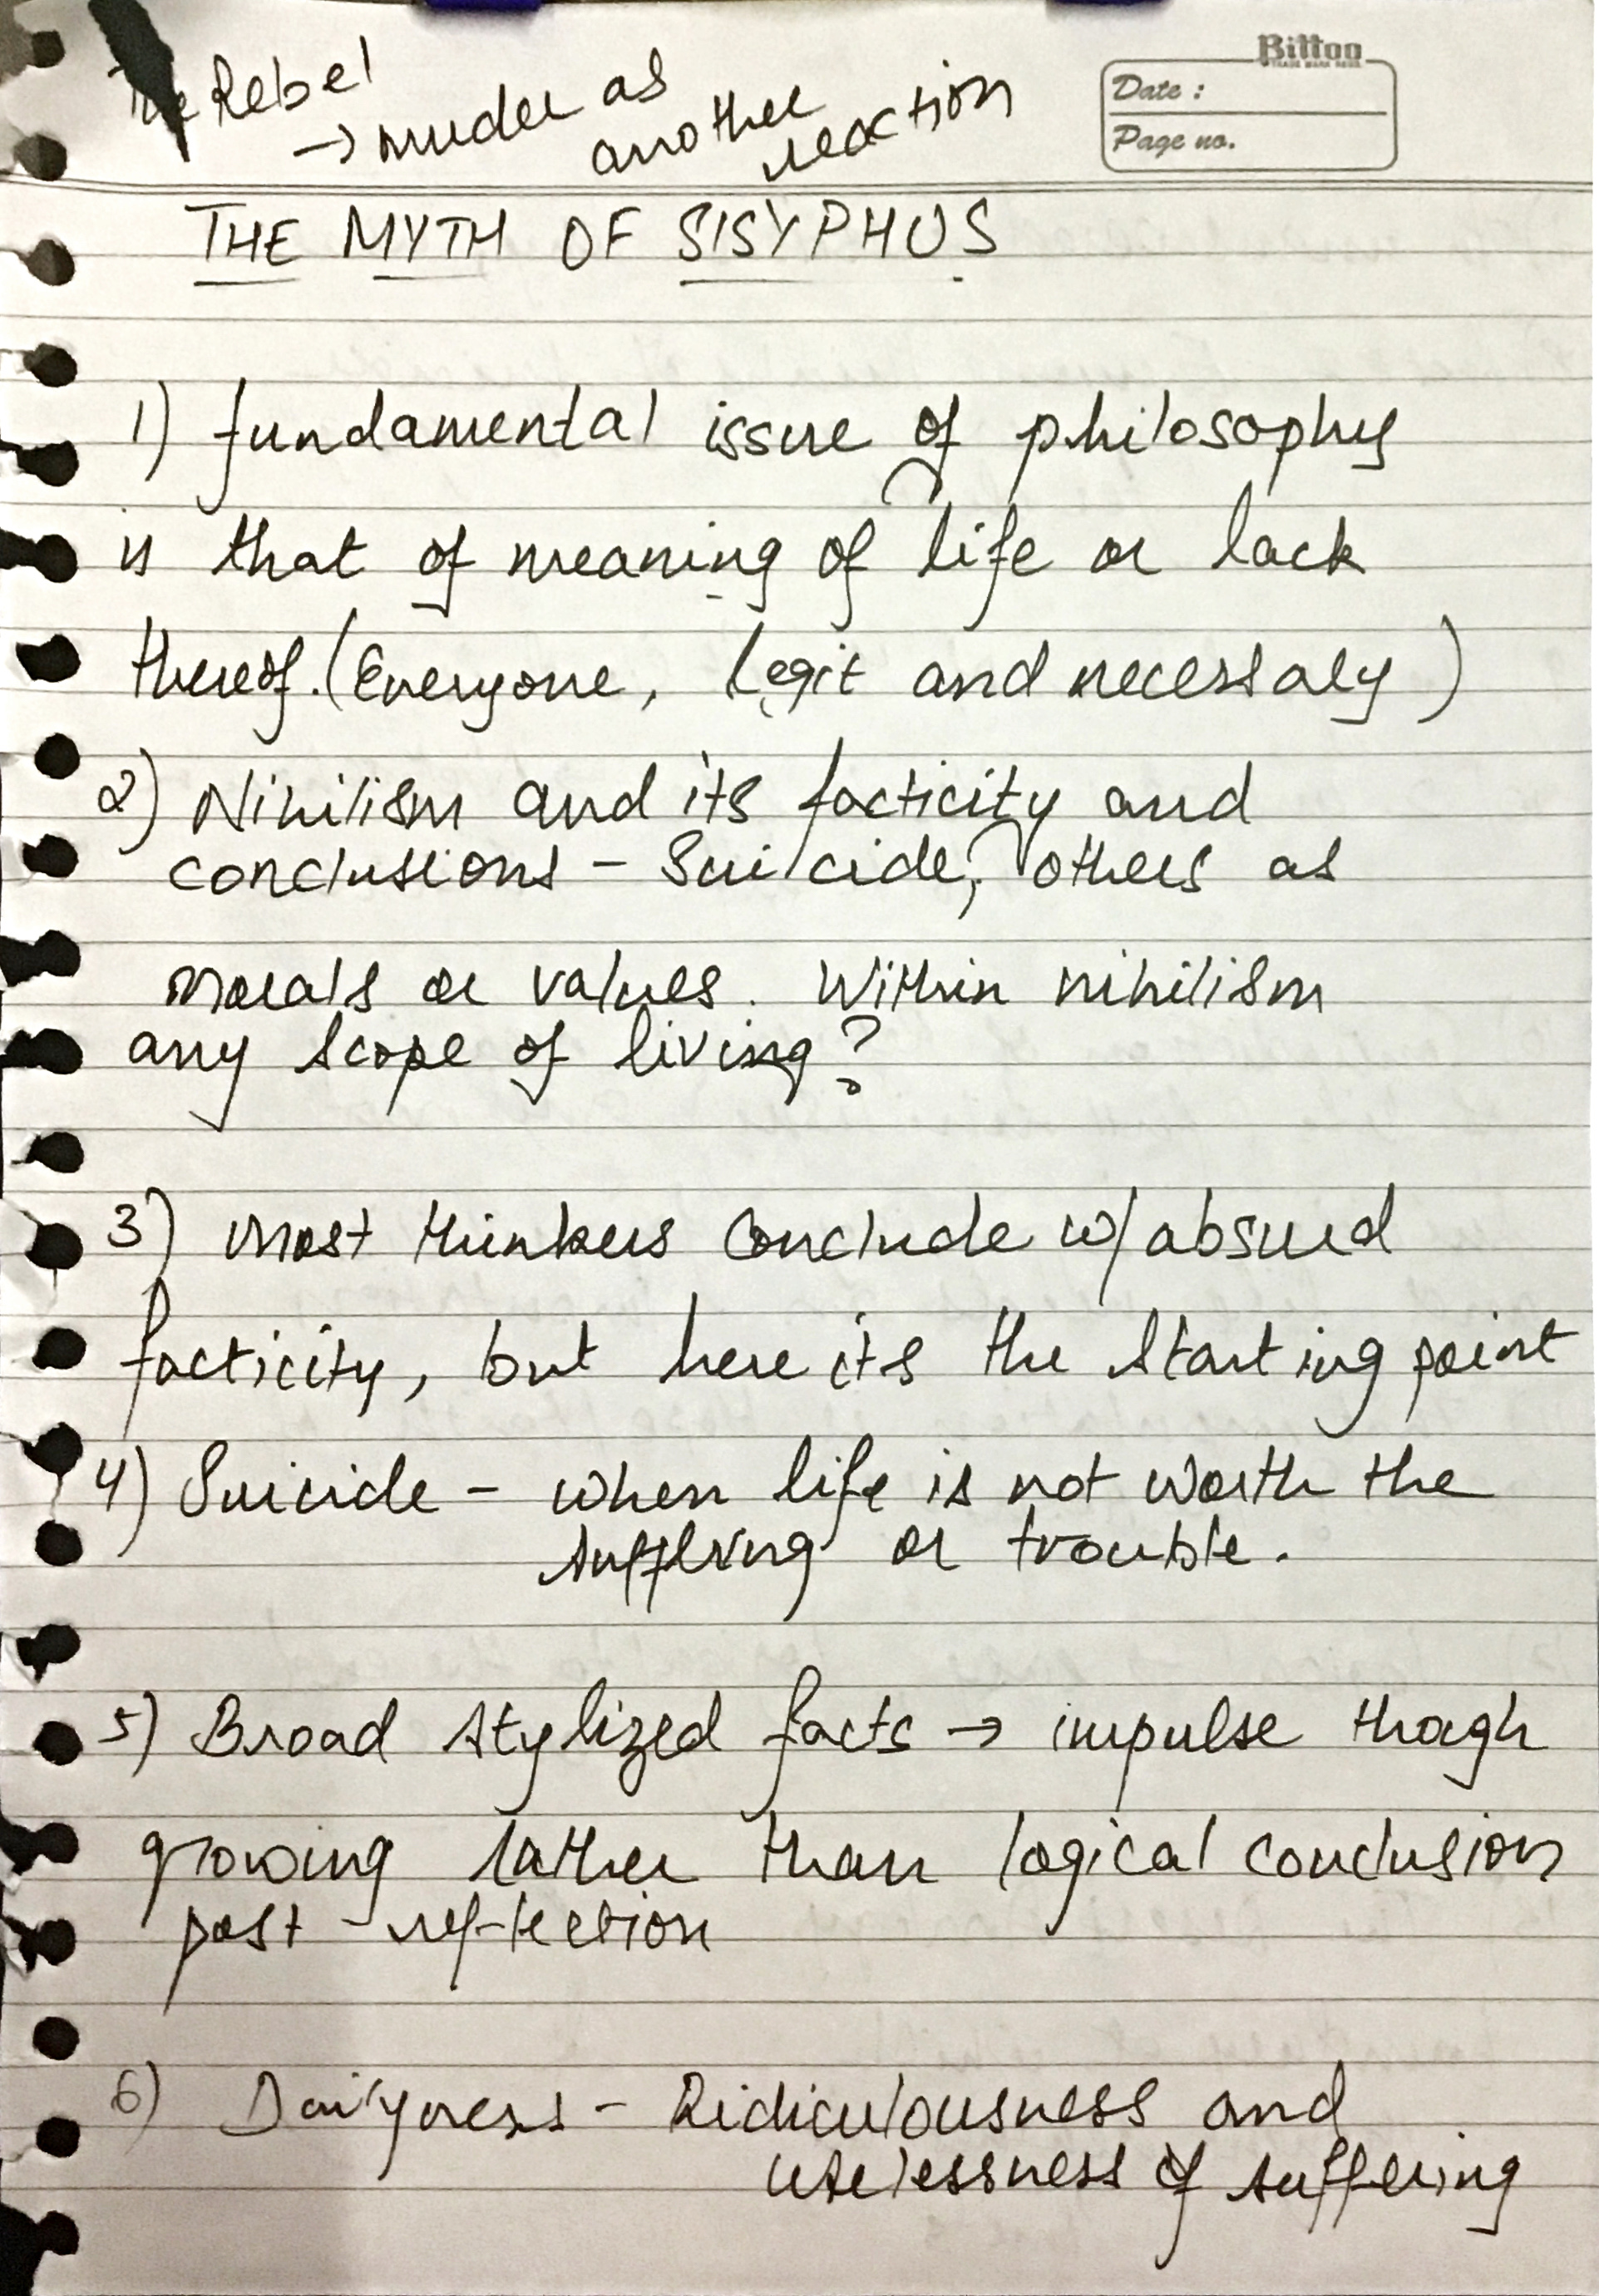 The Rebel
→ murder as
another
reaction
Bittoo
TRADE MARK REGD.
Date :
Page no.
THE MYTH OF SISYPHUS
1) fundamental issue of philosophy
is that of meaning of life or lack
thereof. (Everyone, legit and necessary)
2) Nihilism and its facticity and
conclusions – Suicide, others as
morals or values. Within nihilism
any scope of living?
3) Most thinkers conclude w/ absurd
facticity, but here its the starting point
4) Suicide – when life is not worth the
suffering or trouble.
5) Broad stylized facts → impulse though
growing rather than logical conclusion
post-reflection
6) Dailyness – Ridiculousness and
uselessness of suffering